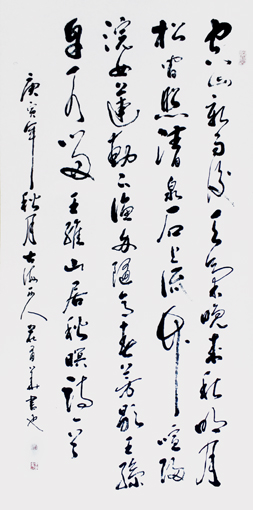 空山新雨後天氣晚來秋明月
松間照清泉石上流竹喧歸
浣女蓮動下漁舟隨意春芳歇王孫
自可留王維山居秋暝詩一首
庚寅年秋月